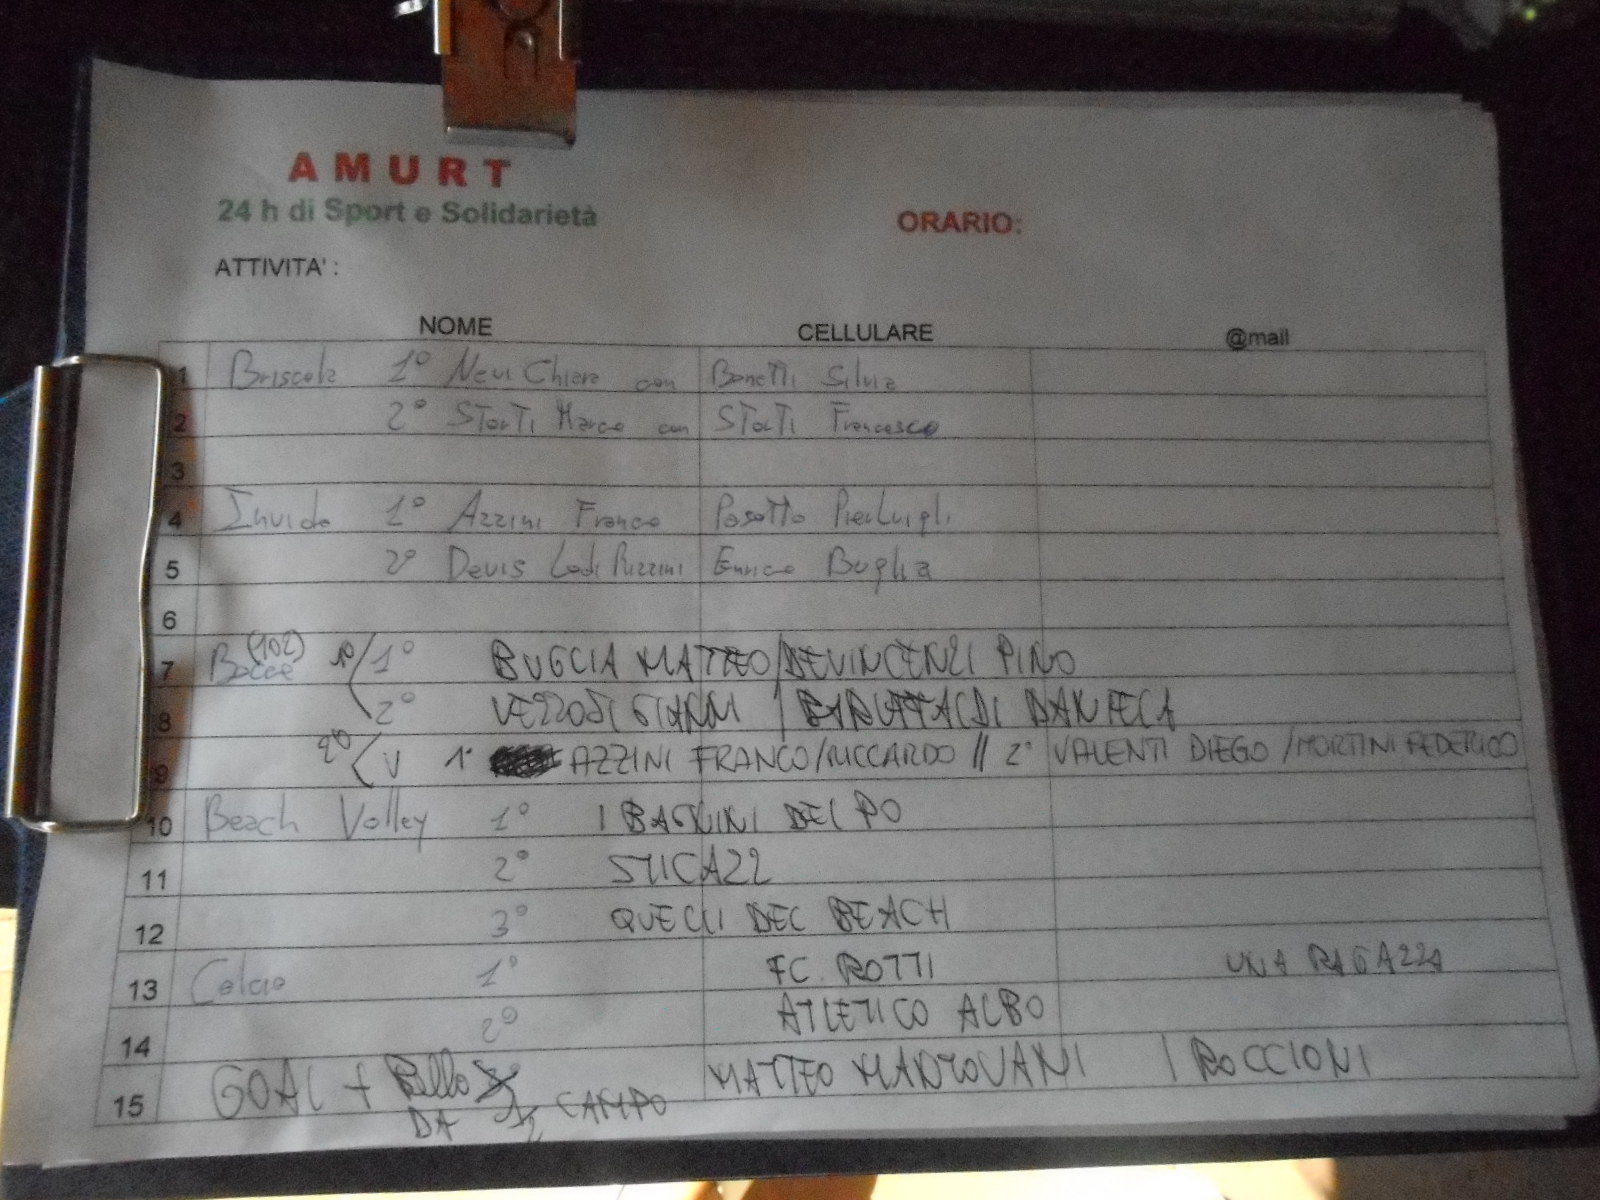 AMURT
24 h di Sport e Solidarietà
ORARIO:
ATTIVITA' :
NOME CELLULARE @mail
1 Briscola 1° Nevi Chiara con Bonetti Silvia
2 2° STorTi Marco con STorTi Francesco
3
4 Invido 1° Azzini Franco PierLuigi
5 2° Devis Lodi Rizzini Enrico Buglia
6
7 Bocce (102) 1° / 1° BUGLIA MATTEO / DEVINCENZI PINO
8 2° GIANNI / DANIELA
9 2° V 1° AZZINI FRANCO/RICCARDO // 2° VALENTI DIEGO / MORTINI FEDERICO
10 Beach Volley 1° I BAGNINI DEL PO
11 2° STICAZZ
12 3° QUELLI DEL BEACH
13 Calcio 1° FC. ROTTI UNA RAGAZZA
14 2° ATLETICO ALBO
15 GOAL + Bello MATTEO MANTOVANI I ROCCIONI
DA 1/2 CAMPO